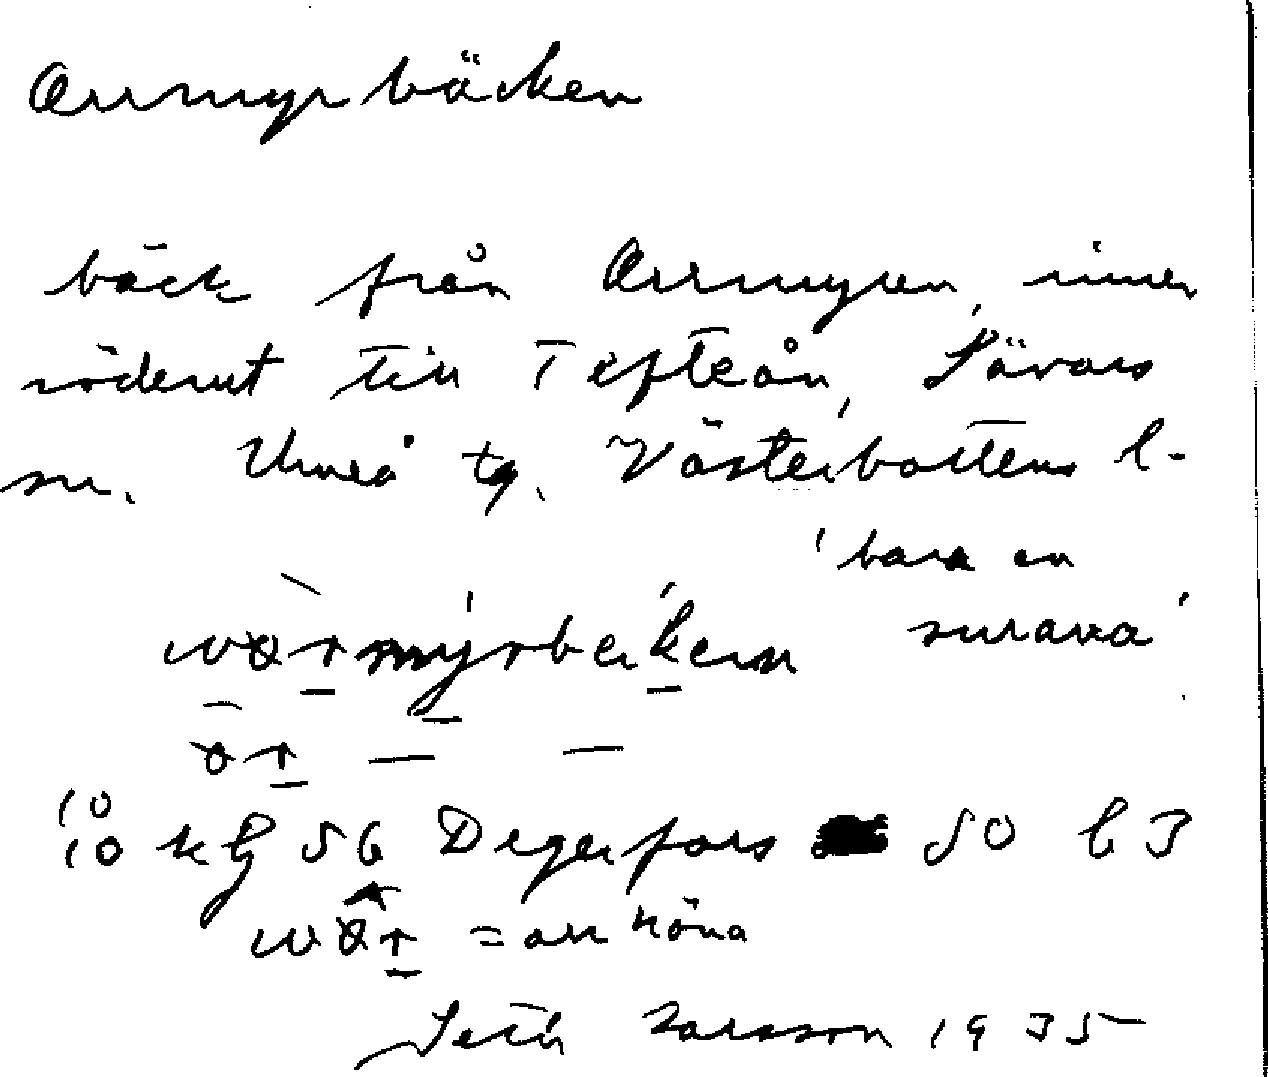 Orrmyrbäcken
bäck från Orrmyren, rinner
söderut till Tefteån, Sävars
sn. Umeå tg. Västerbottens l.
'bara en
surava'
10
10 kg 56 Degerfors SO b3
= orrhöna
Seth Larsson 1935